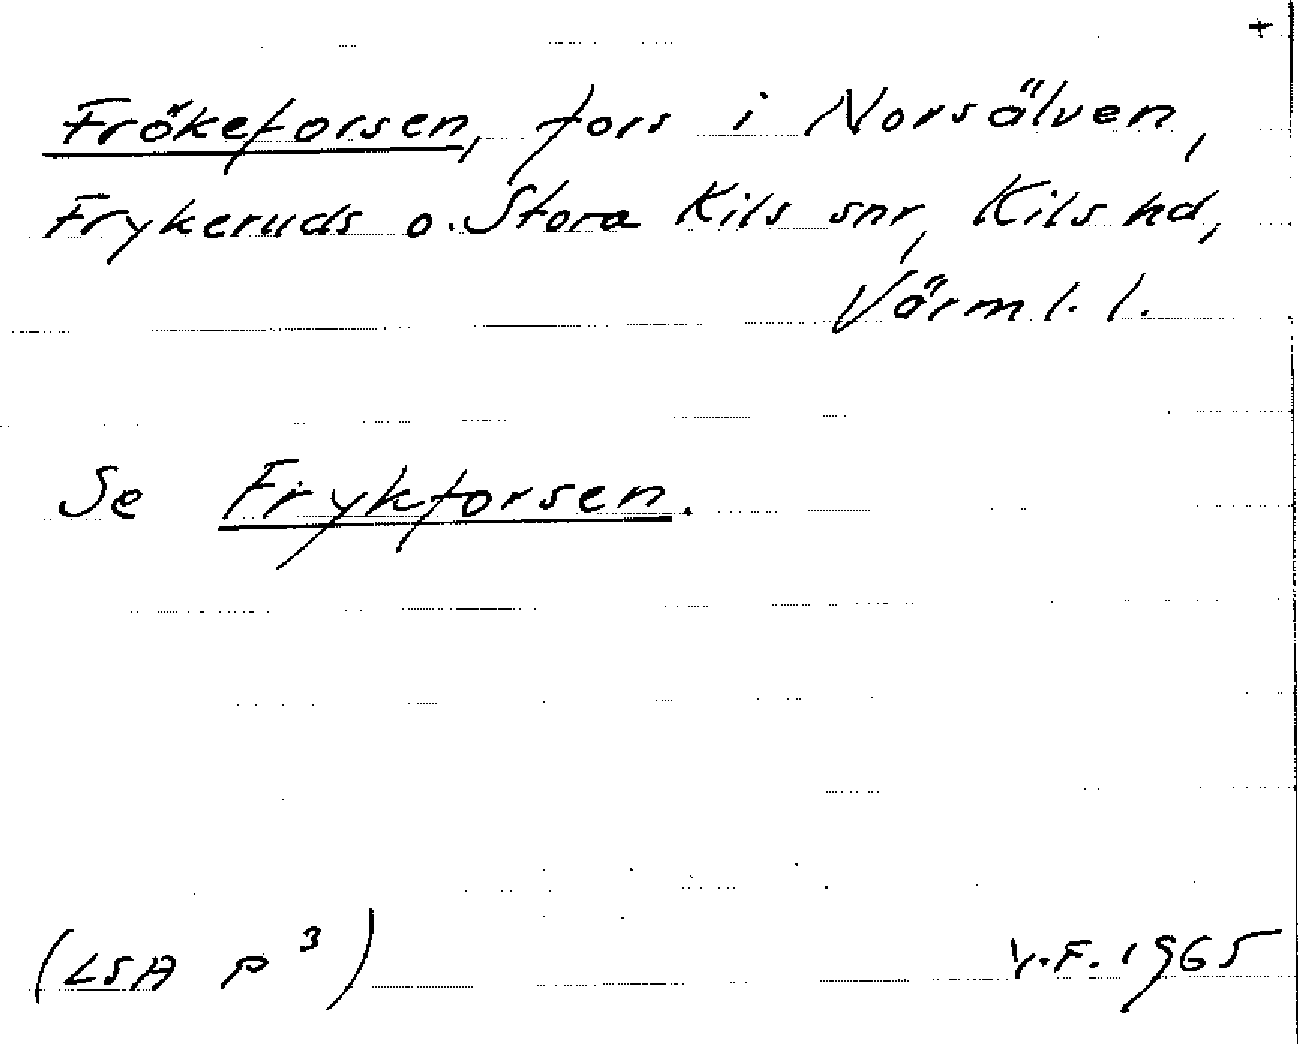 +
Frökeforsen, fors i Norsälven,
Frykeruds o. Stora Kils snr, Kils hd,
Värml. l.
Se Frykforsen.
(LSA P³)
V.F. 1965